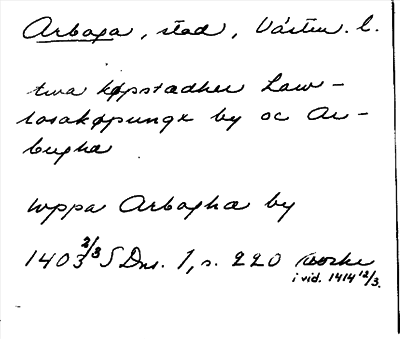 Arboga, stad, Västm. l.
twa køpstædher Law-
losakøpungx by oc Ar-
bugha
wppa Arbogha by
1403 2/3 SDns. 1, s. 220
i vid. 1414 12/3.